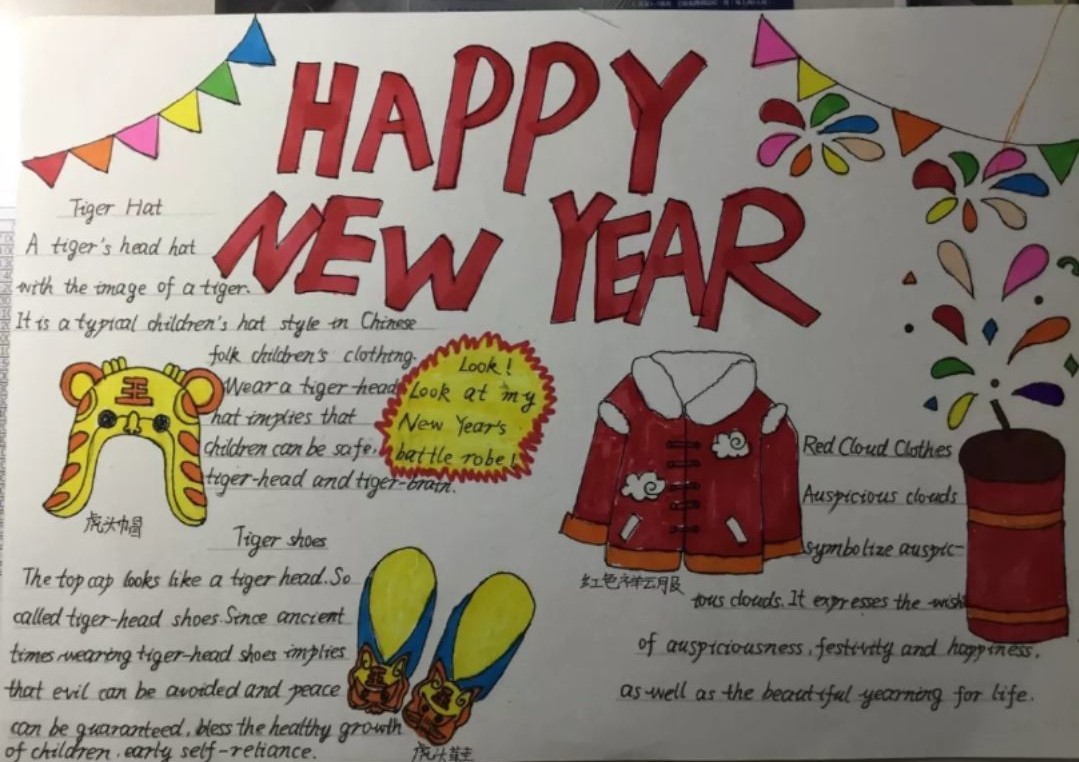 HAPPY
NEW YEAR
Tiger Hat
A tiger's head hat
with the image of a tiger.
It is a typical children's hat style in Chinese
folk children's clothing.
Wear a tiger-head
hat implies that
children can be safe,
tiger-head and tiger-brain.
王
虎头帽
Look!
Look at my
New Year's
battle robe!
Tiger shoes
The top cap looks like a tiger head. So
called tiger-head shoes. Since ancient
times wearing tiger-head shoes implies
that evil can be avoided and peace
can be guaranteed, bless the healthy growth
of children, early self-reliance.
虎头鞋
Red Cloud Clothes
Auspicious clouds
symbolize auspic-
ious clouds. It expresses the wish
of auspiciousness, festivity and happiness,
as well as the beautiful yearning for life.
红色祥云服